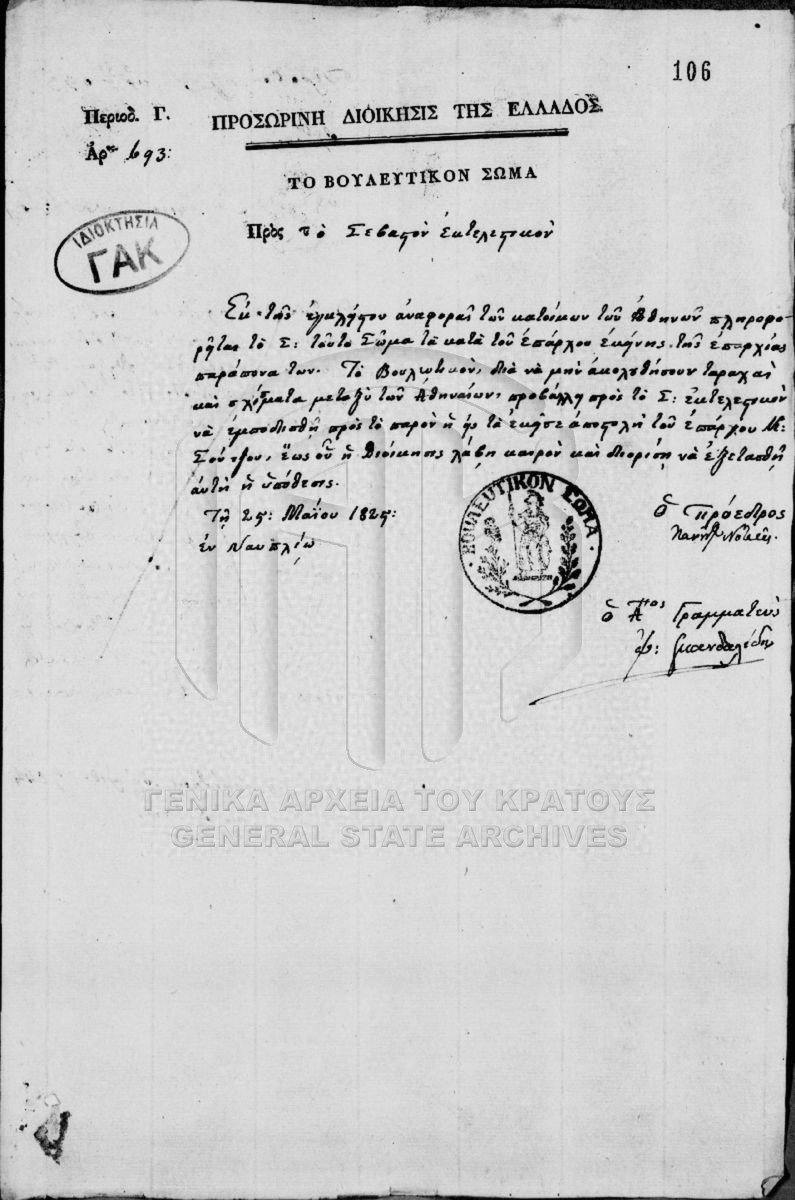 106
Περιοδ. Γ. ΠΡΟΣΩΡΙΝΗ ΔΙΟΙΚΗΣΙΣ ΤΗΣ ΕΛΛΑΔΟΣ.
Ἀρ. 693:
ΤΟ ΒΟΥΛΕΥΤΙΚΟΝ ΣΩΜΑ
ΙΔΙΟΚΤΗΣΙΑ
ΓΑΚ
Πρὸς τὸ Σεβαστὸν ἐκτελεστικὸν
Ἐκ τῆς ἐγκλήτου ἀναφορᾶς τῶν κατοίκων τῶν Ἀθηνῶν πληροφο-
ρῆται τὸ Σ: τοῦτο Σῶμα τὰ κατὰ τοῦ ἐπάρχου ἐκείνης τῆς ἐπαρχίας
παράπονα των. Τὸ Βουλευτικὸν, διὰ νὰ μὴν ἀκολουθήσουν ταραχαὶ
καὶ σχίσματα μεταξὺ τῶν Ἀθηναίων, προβάλλη πρὸς τὸ Σ: ἐκτελεστικὸν
νὰ ἐμποδισθῆ πρὸς τὸ παρὸν ἡ εἰς τὰ ἐκεῖσε ἀποστολὴ τοῦ ἐπάρχου Κ:
Σούτζου, ἕως οὗ ἡ Διοίκησις λάβη καιρὸν καὶ διορίση νὰ ἐξετασθῆ
αὐτὴ ἡ ὑπόθεσις.
Τῆ 25: Μαΐου 1825:
ἐν Ναυπλίῳ
ΒΟΥΛΕΥΤΙΚΟΝ ΣΩΜΑ
ὁ Πρόεδρος
ὁ Αος Γραμματεὺς
ΓΕΝΙΚΑ ΑΡΧΕΙΑ ΤΟΥ ΚΡΑΤΟΥΣ
GENERAL STATE ARCHIVES